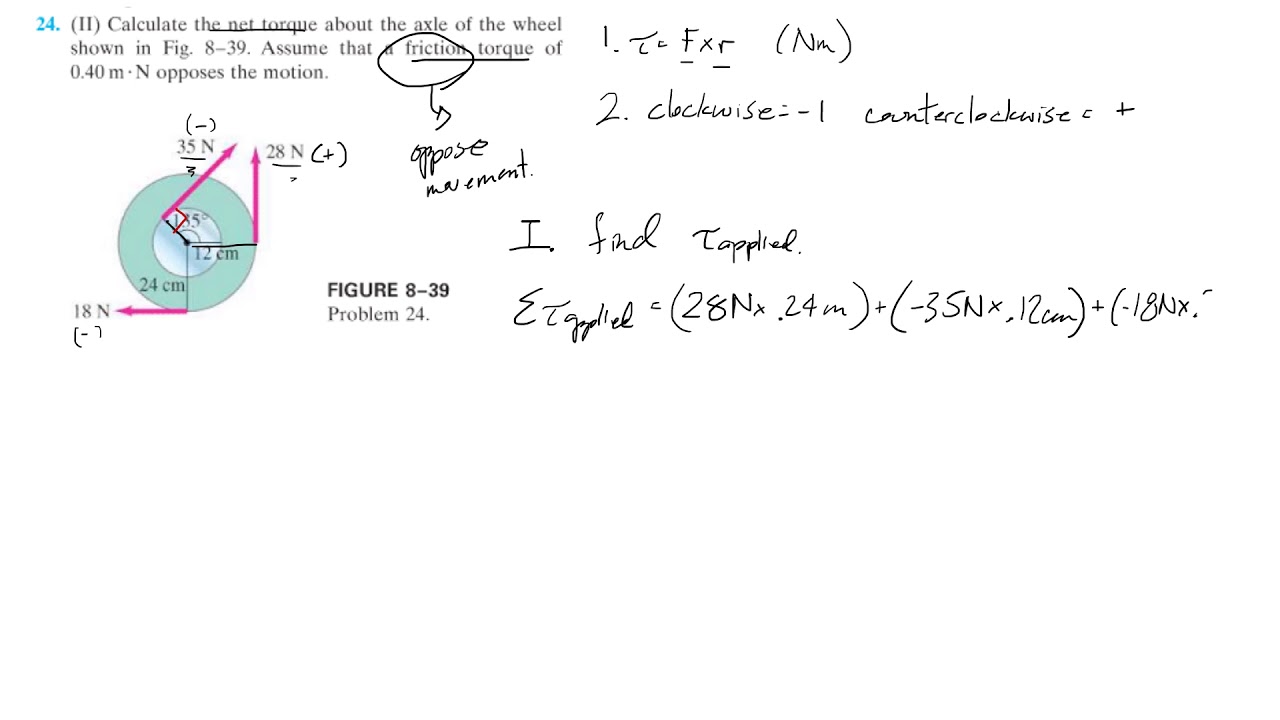 24. (II) Calculate the net torque about the axle of the wheel
shown in Fig. 8–39. Assume that a friction torque of
0.40 m·N opposes the motion.
1. τ = F x r (Nm)
2. clockwise = -1 counterclockwise = +
oppose
movement.
(-)
35 N
28 N (+)
135°
12 cm
24 cm
18 N
(-)
FIGURE 8–39
Problem 24.
I. find τapplied.
Στapplied = (28N x .24m) + (-35N x .12cm) + (-18N x .